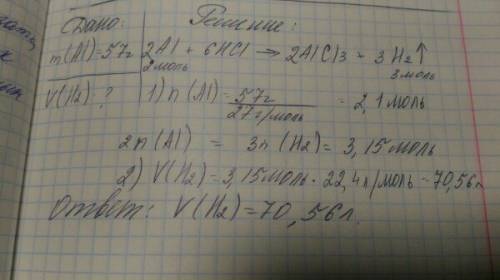 Дано:
Решение:
m(Al)=57г
2Al + 6HCl → 2AlCl3 + 3H2↑
2моль
3моль
V(H2)-?
1) n(Al)= 57г / 27г/моль = 2,1моль
2n(Al) = 3n(H2)= 3,15моль
2) V(H2)=3,15моль · 22,4л/моль = 70,56л
Ответ: V(H2)=70,56л.